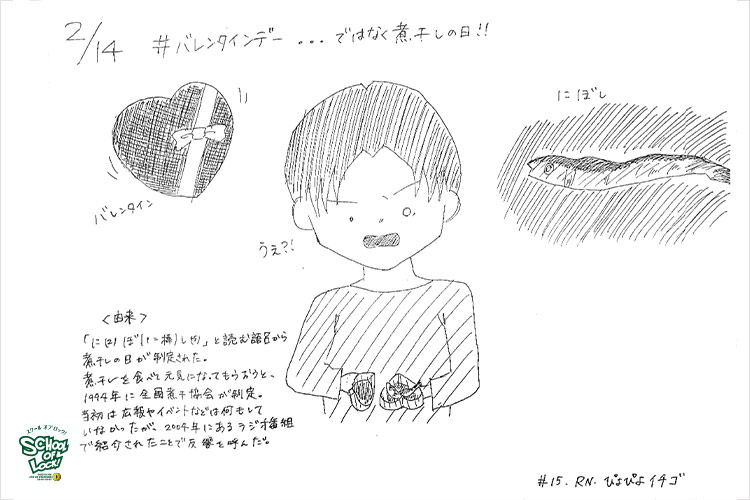 2/14 #バレンタインデー...ではなく煮干しの日!!
バレンタイン
うえ?!
にぼし
<由来>
「に(2)ぼ(1=棒)し(4)」と読む語呂から
煮干しの日が制定された。
煮干しを食べて元気になってもらおうと、
1994年に全国煮干協会が制定。
当初は広報やイベントなどは何もして
いなかったが、2004年にあるラジオ番組
で紹介されたことで反響を呼んだ。
スクール オブ ロック!
SCHOOL OF LOCK!
#15. RN. ぴよぴよイチゴ